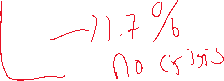 11.7%
No crisis